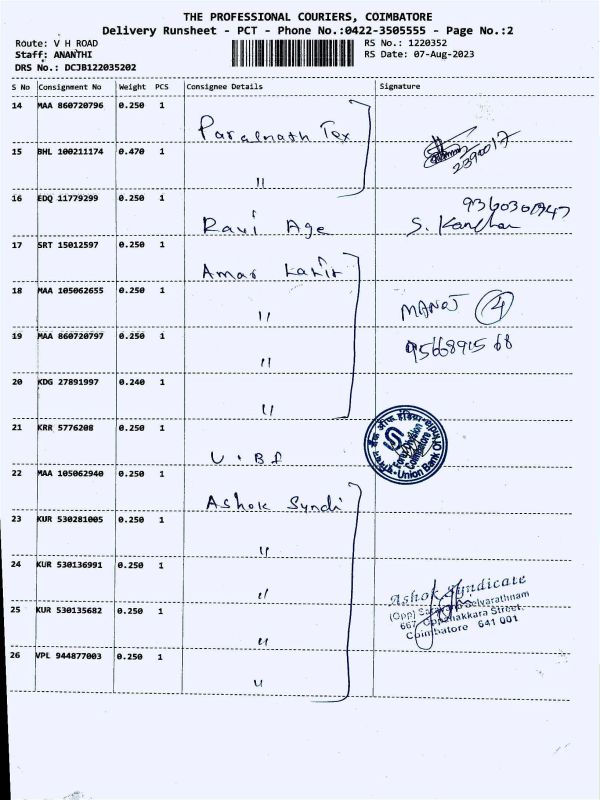 THE PROFESSIONAL COURIERS, COIMBATORE
Delivery Runsheet - PCT - Phone No.:0422-3505555 - Page No.:2
Route: V H ROAD
RS No.: 1220352
Staff: ANANTHI
RS Date: 07-Aug-2023
DRS No.: DCJB122035202
S No Consignment No Weight PCS Consignee Details Signature
14 MAA 860720796 0.250 1
Paralnath Tex
15 BHL 100211174 0.470 1
2390017
"
16 EDQ 11779299 0.250 1
Ravi Age
S. Kanchan
17 SRT 15012597 0.250 1
Amar
18 MAA 105062655 0.250 1
" MANOJ 4
19 MAA 860720797 0.250 1
" 9566891568
20 KDG 27891997 0.240 1
"
21 KRR 5776208 0.250 1
Union Bank Of India
Forex Division
Coimbatore
22 MAA 105062940 0.250 1
Ashok Syndi
23 KUR 530281005 0.250 1
"
24 KUR 530136991 0.250 1
"
Ashok Syndicate
25 KUR 530135682 0.250 1
(Opp) Selvarathnam
667, Oppanakkara Street,
" Coimbatore 641 001
26 VPL 944877003 0.250 1
"